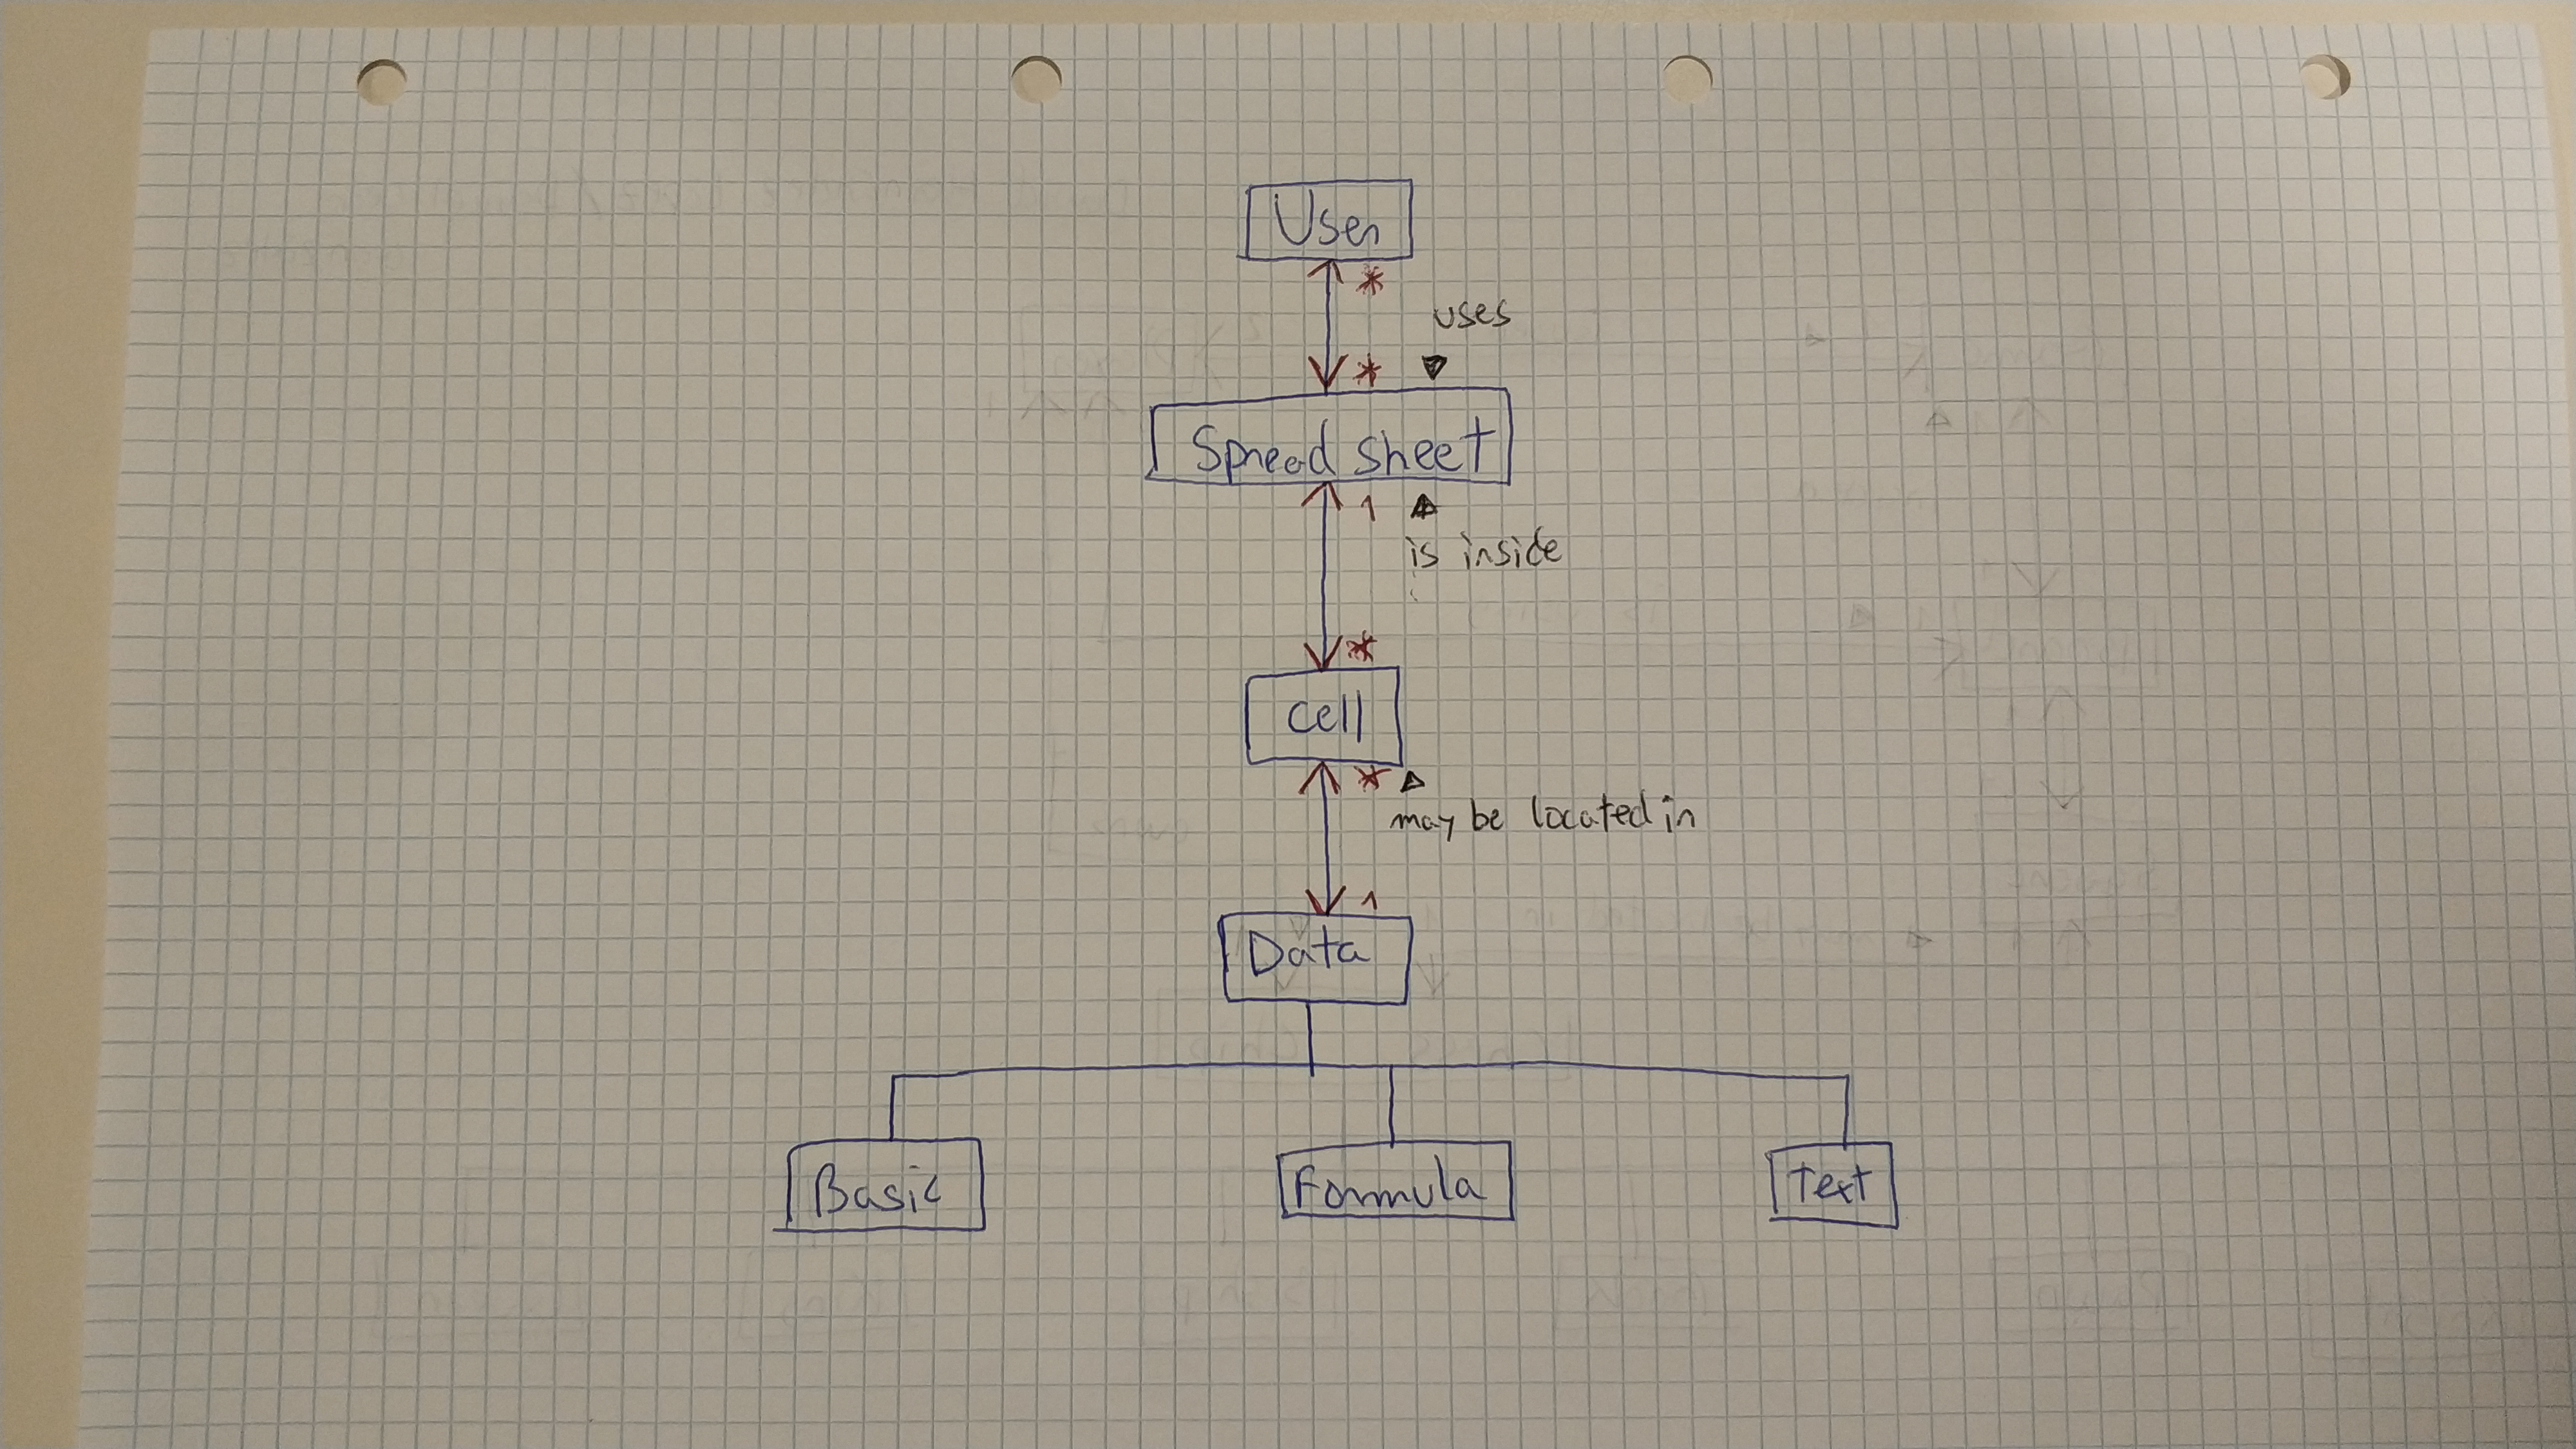 User
*
uses
* ▼
Spread sheet
1 ▲
is inside
*
cell
* ▲
may be located in
1
Data
Basic Formula Text